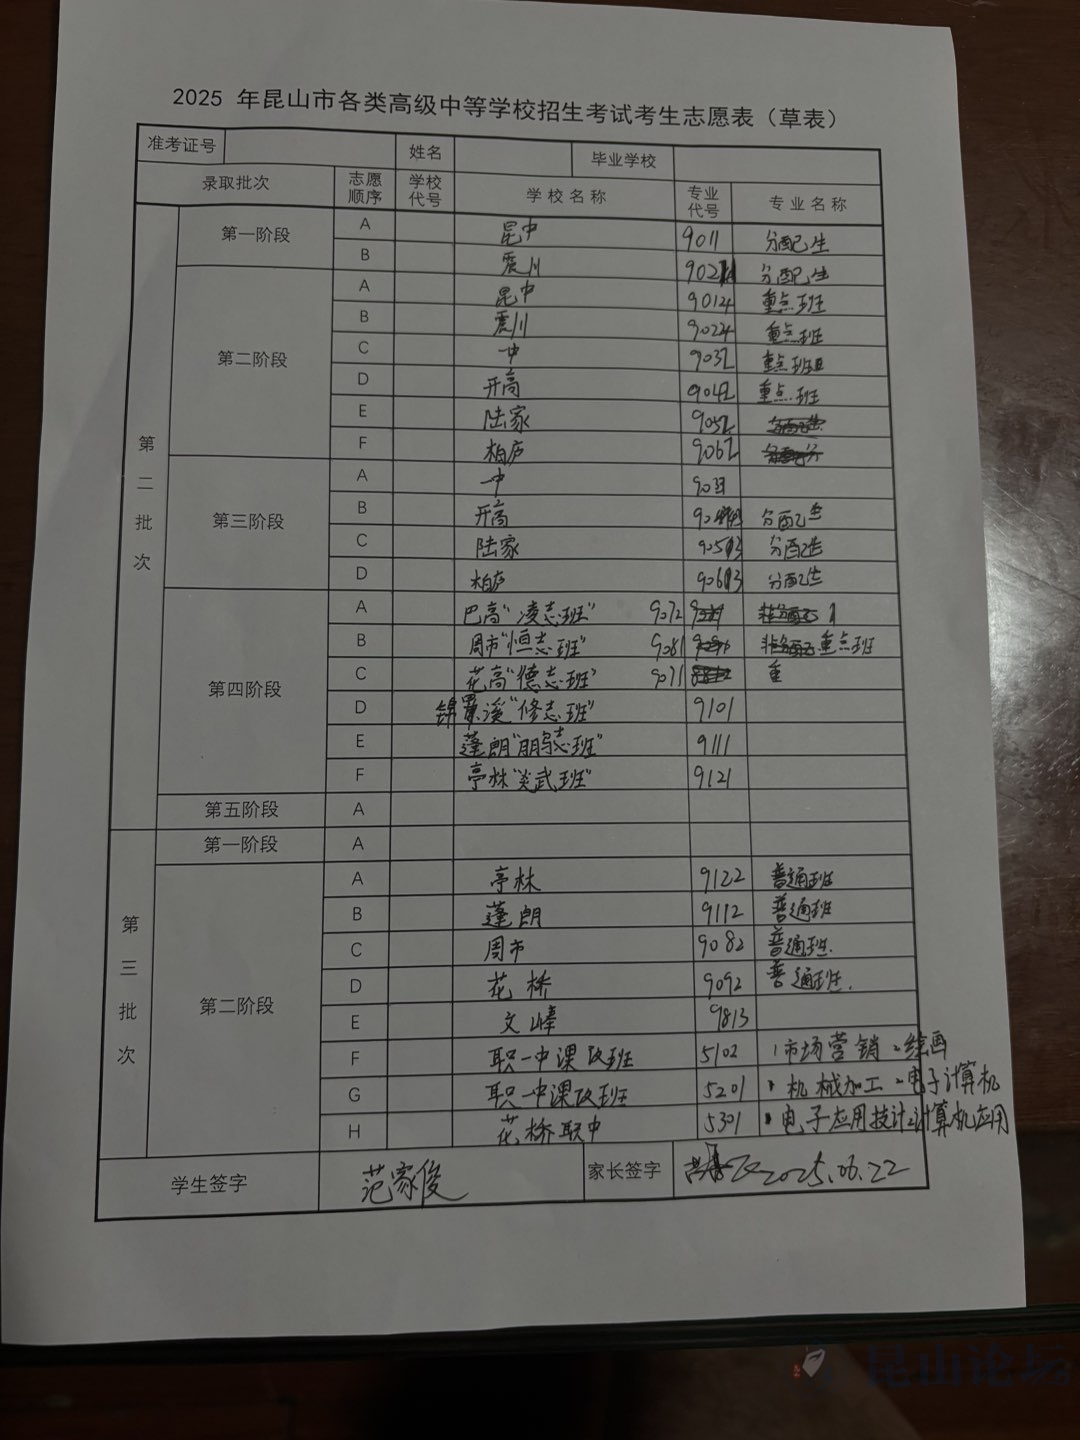 2025 年昆山市各类高级中等学校招生考试考生志愿表（草表）
准考证号 姓名 毕业学校
录取批次 志愿顺序 学校代号 学校名称 专业代号 专业名称
第二批次
第一阶段 A 昆中 9011 分配生
B 震川 9021 分配生
第二阶段 A 昆中 9012 重点班
B 震川 9022 重点班
C 一中 9032 重点班
D 开高 9042 重点班
E 陆家 9052
F 柏庐 9062
第三阶段 A 一中 903
B 开高 904 分配生
C 陆家 9053 分配生
D 柏庐 9063 分配生
第四阶段 A 巴高“凌志班” 9072
B 周市“恒志班” 9081 重点班
C 花高“德志班” 9071 重
D 锦溪“修志班” 9101
E 蓬朗“鹏志班” 9111
F 亭林“炎武班” 9121
第五阶段 A
第三批次
第一阶段 A
第二阶段 A 亭林 9122 普通班
B 蓬朗 9112 普通班
C 周市 9082 普通班.
D 花桥 9092 普通班.
E 文峰 9813
F 职一中课改班 5102 1市场营销 2绘画
G 职一中课改班 5201 机械加工 2电子计算机
H 花桥职中 5301 电子应用技计2计算机应用
学生签字 范家俊 家长签字 2025.06.22
昆山论坛